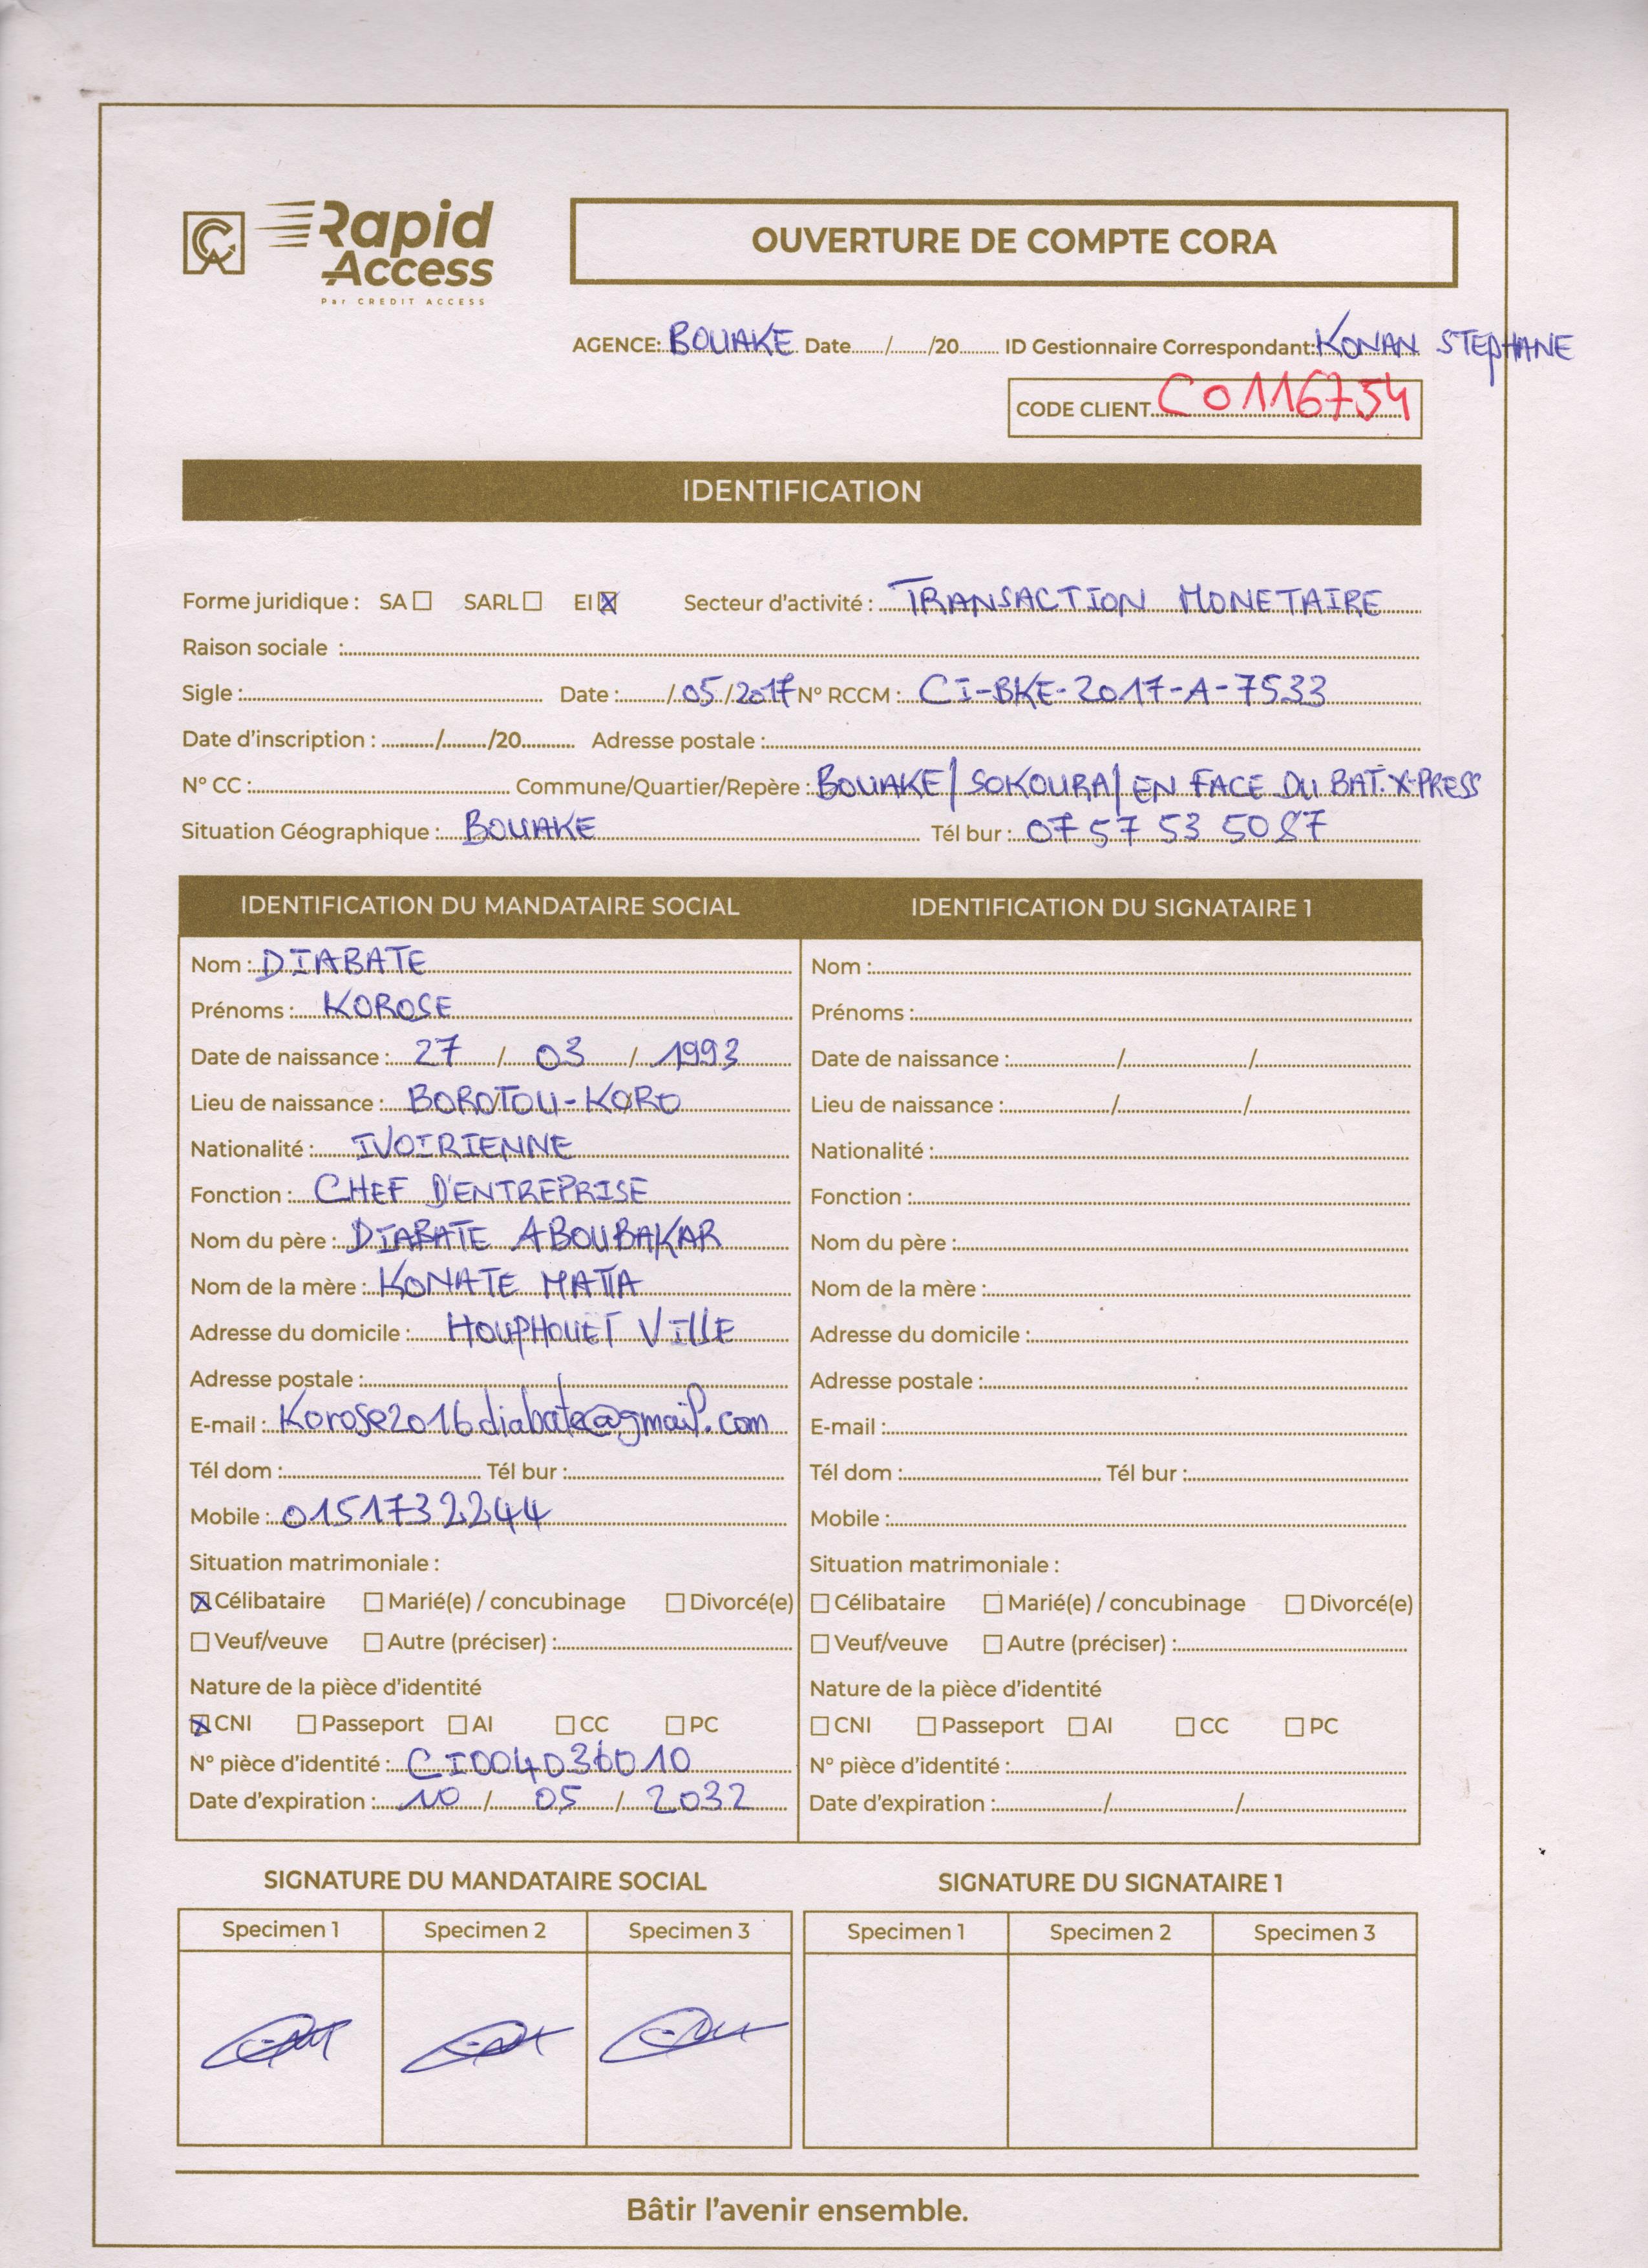 Rapid
Access
Par CREDIT ACCESS
OUVERTURE DE COMPTE CORA
AGENCE: BOUAKE Date......./......./20........ ID Gestionnaire Correspondant: KONAN STEPHANE
CODE CLIENT C0116754
IDENTIFICATION
Forme juridique : SA ☐ SARL ☐ EI ☒ Secteur d'activité : TRANSACTION MONETAIRE
Raison sociale :
Sigle : Date : ......./05/2017 N° RCCM : CI-BKE-2017-A-7533
Date d'inscription : ........../........./20........... Adresse postale :
N° CC : Commune/Quartier/Repère : BOUAKE/SOKOURA/EN FACE DU BAT. X-PRESS
Situation Géographique : BOUAKE Tél bur : 07 57 53 5087
IDENTIFICATION DU MANDATAIRE SOCIAL
Nom : DIABATE
Prénoms : KOROSE
Date de naissance : 27 / 03 / 1993
Lieu de naissance : BOROTOU-KORO
Nationalité : IVOIRIENNE
Fonction : CHEF D'ENTREPRISE
Nom du père : DIABATE ABOUBAKAR
Nom de la mère : KONATE
Adresse du domicile : HOUPHOUET VILLE
Adresse postale :
E-mail : Korose2016diabate@gmail.com
Tél dom : Tél bur :
Mobile : 0151732244
Situation matrimoniale :
☒ Célibataire ☐ Marié(e) / concubinage ☐ Divorcé(e)
☐ Veuf/veuve ☐ Autre (préciser) :
Nature de la pièce d'identité
☒ CNI ☐ Passeport ☐ AI ☐ CC ☐ PC
N° pièce d'identité : CI004036010
Date d'expiration : 10 / 05 / 2032
IDENTIFICATION DU SIGNATAIRE 1
Nom :
Prénoms :
Date de naissance : / /
Lieu de naissance : / /
Nationalité :
Fonction :
Nom du père :
Nom de la mère :
Adresse du domicile :
Adresse postale :
E-mail :
Tél dom : Tél bur :
Mobile :
Situation matrimoniale :
☐ Célibataire ☐ Marié(e) / concubinage ☐ Divorcé(e)
☐ Veuf/veuve ☐ Autre (préciser) :
Nature de la pièce d'identité
☐ CNI ☐ Passeport ☐ AI ☐ CC ☐ PC
N° pièce d'identité :
Date d'expiration : / /
SIGNATURE DU MANDATAIRE SOCIAL
Specimen 1 Specimen 2 Specimen 3
SIGNATURE DU SIGNATAIRE 1
Specimen 1 Specimen 2 Specimen 3
Bâtir l'avenir ensemble.